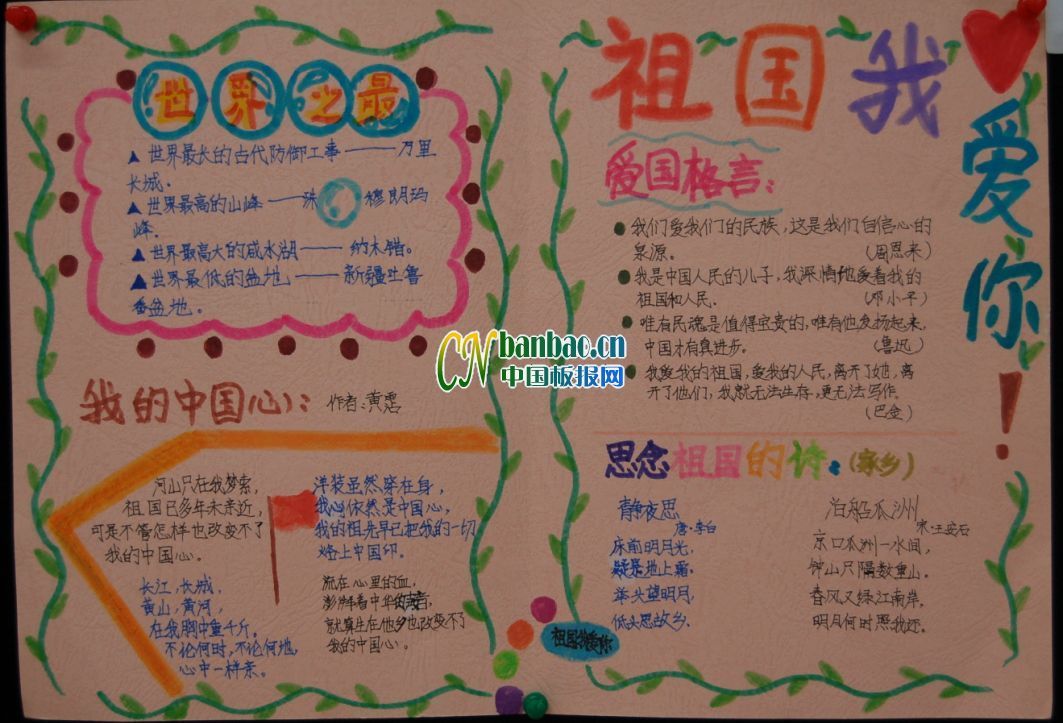 世界之最
▲世界最长的古代防御工事——万里
长城.
▲世界最高的山峰——珠穆朗玛
峰.
▲世界最高大的咸水湖——纳木错。
▲世界最低的盆地——新疆吐鲁
番盆地.
CN banbao.cn
中国板报网
我的中国心:
作者:黄霑
河山只在我梦索,
祖国已多年未亲近,
可是不管怎样也改变不了
我的中国心.
长江,长城,
黄山,黄河,
在我胸中重千斤。
不论何时,不论何地,
心中一样亲。
洋装虽然穿在身,
我心依然是中国心,
我的祖先早已把我的一切
烙上中国印。
流在心里的血,
澎湃着中华的
就算生在他乡也改变不了
我的中国心。
祖国我爱你!
爱国格言:
●我们爱我们的民族,这是我们自信心的
泉源。 (周恩来)
●我是中国人民的儿子,我深情地爱着我的
祖国和人民. (邓小平)
●唯有民魂是值得宝贵的,唯有他发扬起来,
中国才有真进步。 (鲁迅)
●我爱我的祖国,爱我的人民,离开了她,离
开了他们,我就无法生存,更无法写作.
(巴金)
思念祖国的诗:(家乡)
静夜思
唐·李白
床前明月光,
疑是地上霜.
举头望明月,
低头思故乡.
泊船瓜洲
宋·王安石
京口瓜洲一水间,
钟山只隔数重山。
春风又绿江南岸,
明月何时照我还.
祖国我爱你